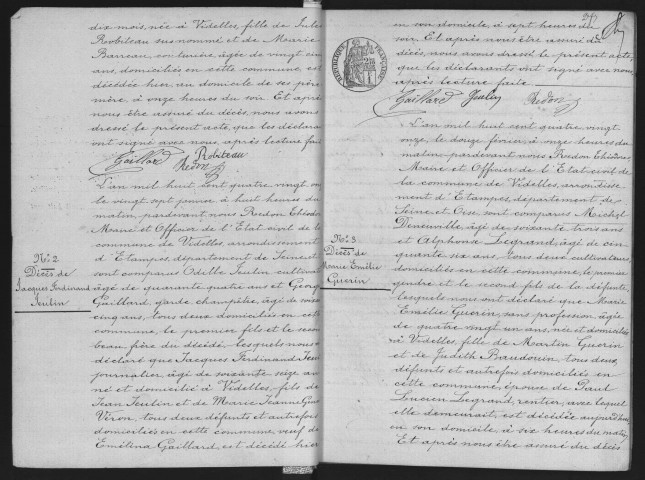 dix mois, née à Videlles, fille de Jules
Robiteau susnommé et de Marie
Barreau, couturière, âgée de vingt cinq
ans, domiciliés en cette commune, est
décédée hier, au domicile de ses père
mère, à onze heures du soir. Et après
nous être assuré du décès, nous avons
dressé le présent acte, que les déclarants
ont signé avec nous, après lecture faite.
Gaillard Robiteau
Redon
N° 2
Décès de
Jacques Ferdinand
Jeulin
L'an mil huit cent quatre vingt on
le vingt sept janvier, à huit heures du
matin, pardevant nous Redon Théodo
Maire et Officier de l'Etat civil de la
commune de Videlles, arrondissement
d'Etampes, département de Seine et
sont comparus Odille Jeulin cultivat
âgé de quarante quatre ans et Georg
Gaillard, garde champêtre, âgé de soix
cinq ans, tous deux domiciliés en cette
commune, le premier fils et le second
beau frère du décédé, lesquels nous
déclaré que Jacques Ferdinand Jeu
journalier âgé de soixante seize an
né et domicilié à Videlles, fils de
Jean Jeulin et de Marie Jeanne
Véron, tous deux défunts et autrefois
domiciliés en cette commune, veuf de
Emélina Gaillard, est décédé hier
en son domicile, à sept heures du
soir. Et après nous être assuré du
décès, nous avons dressé le présent acte,
que les déclarants ont signé avec nous
après lecture faite.
Gaillard Jeulin Redon
REPUBLIQUE FRANÇAISE
N° 3
Décès de
Marie Emélie
Guerin
L'an mil huit cent quatre vingt
onze, le douze février, à onze heures du
matin, pardevant nous Redon Théodore
Maire et Officier de l'Etat civil de
la commune de Videlles, arrondisse
ment d'Etampes, département de
Seine et Oise, sont comparus Michel
Denewolle âgé de soixante trois ans
et Alphonse Legrand, âgé de cin
quante six ans, tous deux cultivateurs,
domiciliés en cette commune, le premier
gendre et le second fils de la défunte,
lesquels nous ont déclaré que Marie
Emélie Guerin, sans profession, âgée
de quatre vingt un ans, née et domiciliée
à Videlles, fille de Martin Guerin
et de Judith Baudouin, tous deux
défunts et autrefois domiciliés en
cette commune, épouse de Paul
Lucien Legrand, rentier, avec lequel
elle demeurait, est décédée aujourd'hui
en son domicile, à six heures du matin,
Et après nous être assuré du décès